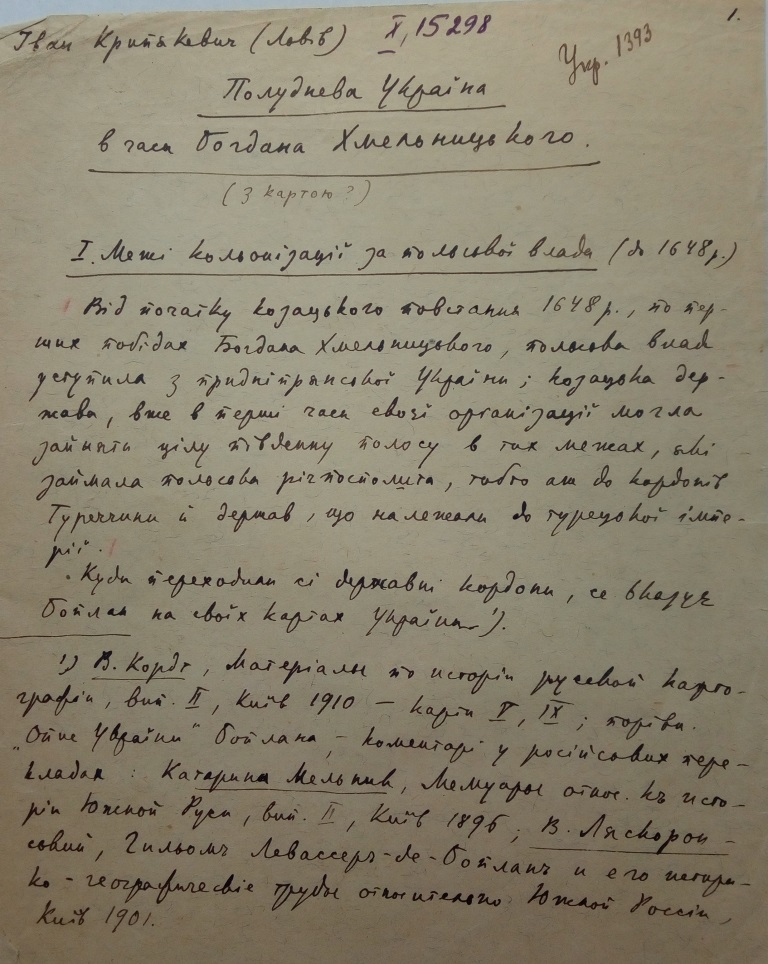 1.
Іван Крипякевич (Львів) X, 15298
Укр. 1393
Полуднева Україна
в часи Богдана Хмельницького.
(З картою?)
I. Межі кольонізації за польської влади (до 1648 р.)
Від початку козацького повстання 1648 р., по пер-
ших побідах Богдана Хмельницького, польська влада
уступила з придніпрянської України; козацька дер-
жава, вже в перші часи своєї організації могла
зайняти цілу південну полосу в тих межах, які
займала польська річпосполита, тобто аж до кордонів
Туреччини й держав, що належали до турецької імпе-
рії.
Куди переходили сі державні кордони, се вказує
Боплан на своїх картах України ¹).
¹) В. Кордт, Матеріалы по исторіи русской карто-
графіи, вип. II, Київ 1910 – карти V, IX; порівн.
"Опис України" Боплана, – коментарі у російських пере-
кладах: Катарина Мельник, Мемуары относ. къ исто-
ріи Южной Руси, вип. II, Київ 1896; В. Ляскорон-
ський, Гильомъ Левассеръ-де-Бопланъ и его истори-
ко-географическіе труды относительно Южной Россіи,
Київ 1901.